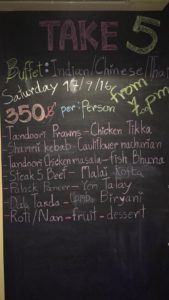 TAKE 5
Buffet: Indian/Chinese/Thai
Saturday 17/9/16
from 7pm
350 per: Person
- Tandoori Prawns - Chicken Tikka
- Shammi kebab - Cauliflower machurian
- Tandoori Chicken masala - fish Bhuna
- Steak 5 Beef - Malai Kofta
- Palack Paneer - Yem Talay
- Dala Tarda - Biryani
- Roti/Nan - fruit - dessert